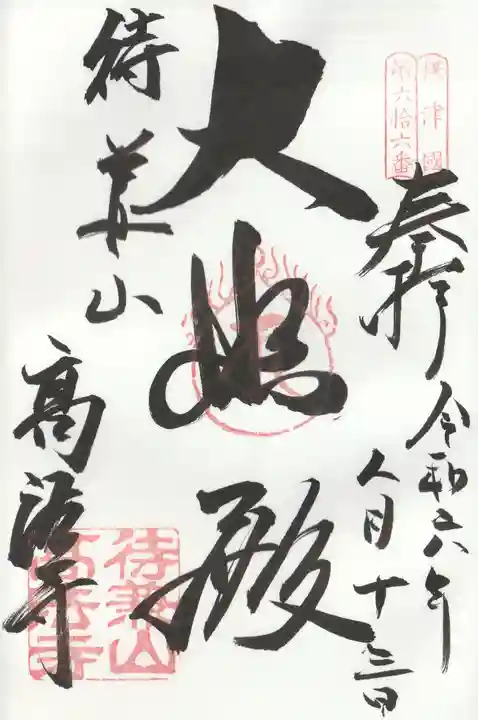 攝津國
第六拾六番
奉拝
令和六年
八月十三日
大悲殿
待兼山
高法寺
待兼山
高法寺